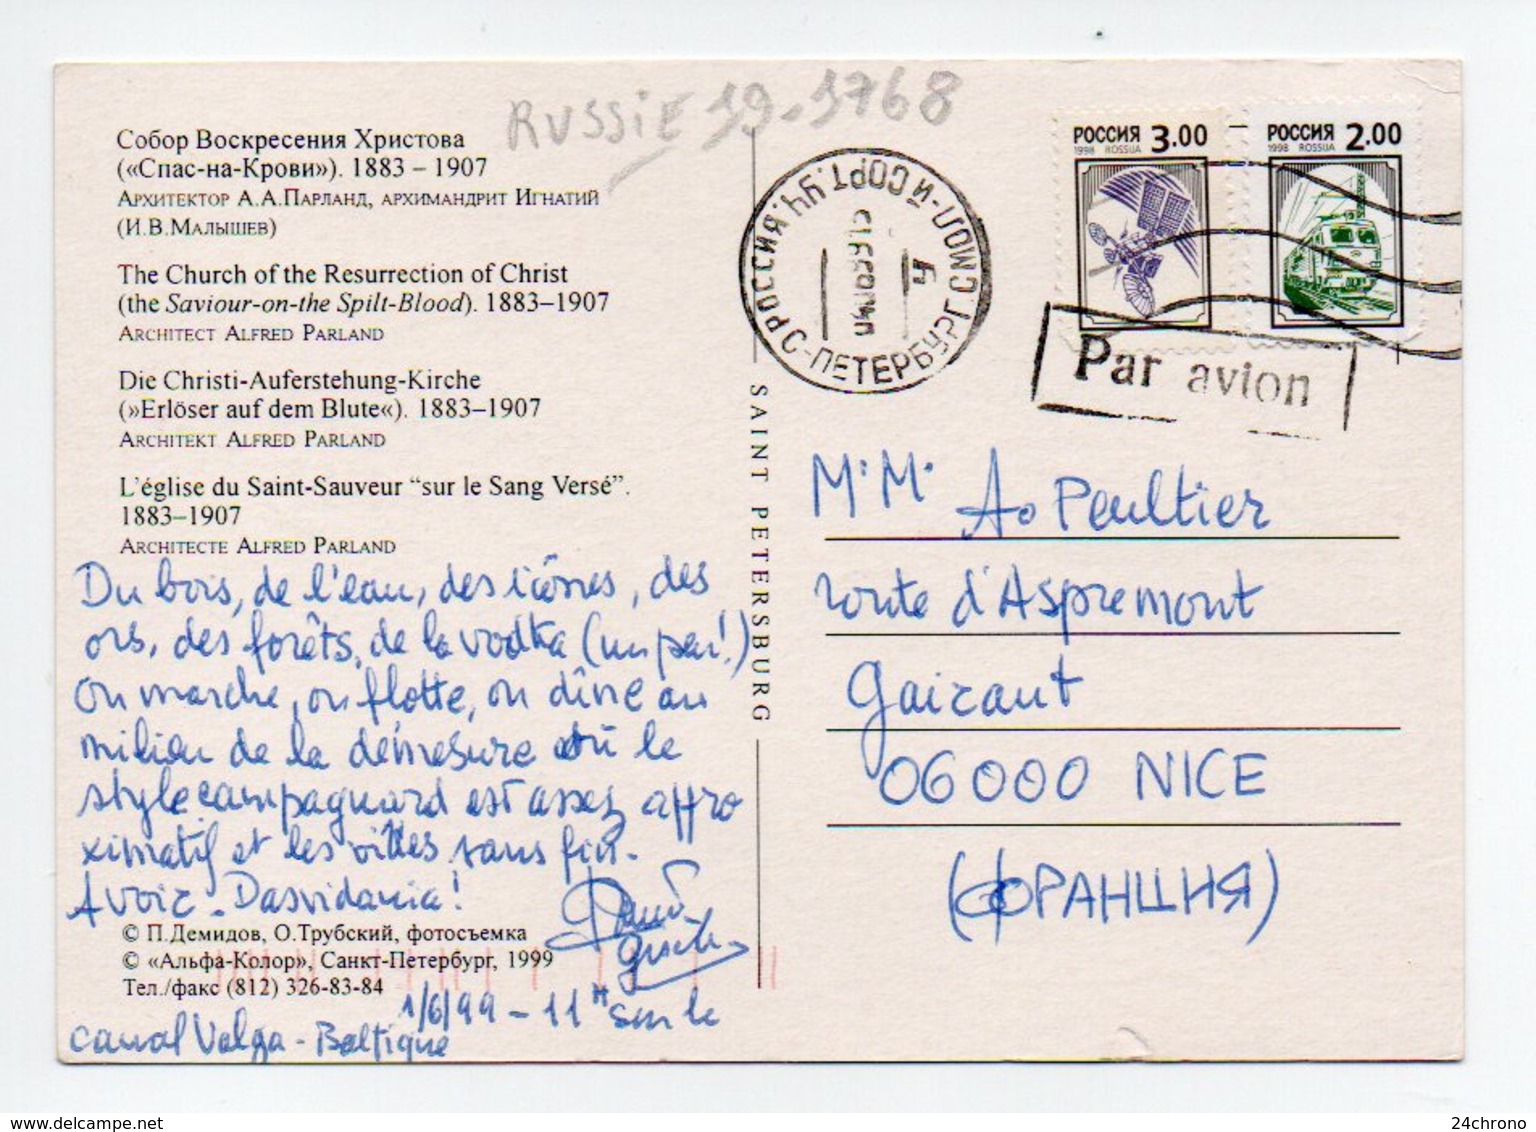 RUSSIE 19-1768
Собор Воскресения Христова
(«Спас-на-Крови»). 1883 – 1907
Архитектор А.А.Парланд, архимандрит Игнатий
(И.В.Малышев)
The Church of the Resurrection of Christ
(the Saviour-on-the Spilt-Blood). 1883–1907
Architect Alfred Parland
Die Christi-Auferstehung-Kirche
(»Erlöser auf dem Blute«). 1883–1907
Architekt Alfred Parland
L'église du Saint-Sauveur “sur le Sang Versé”.
1883–1907
Architecte Alfred Parland
Du bois, de l'eau, des icônes, des
ors, des forêts, de la vodka (un peu!)
On marche, on flotte, on dîne au
milieu de la démesure où le
style campagnard est assez appro
ximatif et les villes sans fin.
Avoir - Dasvidania!
© П.Демидов, О.Трубский, фотосъемка
© «Альфа-Колор», Санкт-Петербург, 1999
Тел./факс (812) 326-83-84
1/6/99 - 11H sur le
canal Volga - Baltique
SAINT PETERSBURG
РОССИЯ 3.00
1998 ROSSIJA
РОССИЯ 2.00
1998 ROSSIJA
РОССИЯ
С-ПЕТЕРБУРГ
Par avion
M. M. A. Peultier
route d'Aspremont
Gairaut
06000 NICE
(ФРАНЦИЯ)
24chrono
www.delcampe.net